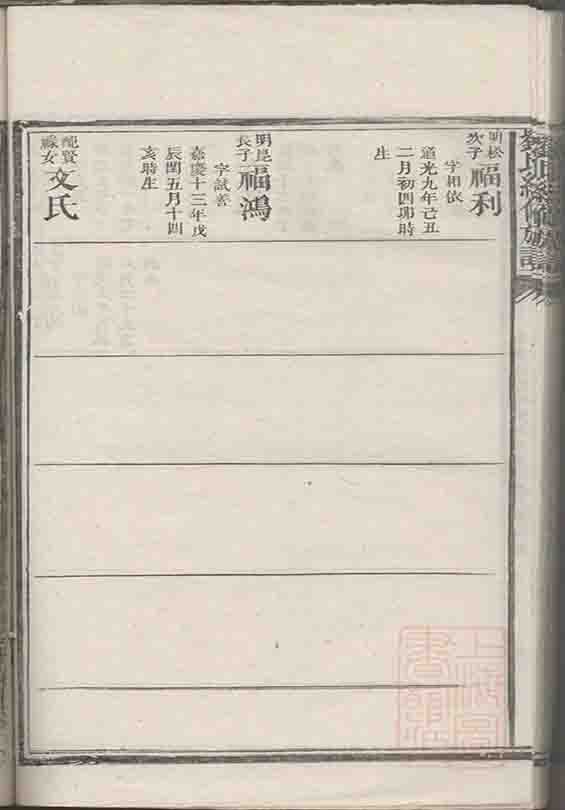 明松
次子
福利
字相依
道光九年己丑
二月初四卯時
生
明昆
長子
福鴻
字試善
嘉慶十三年戊
辰閏五月十四
亥時生
配賢
嗓女
文氏
上海圖
書館藏